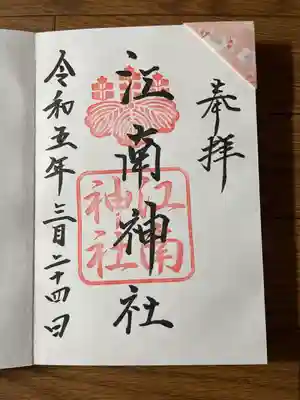 奉拝
江南神社
江南
神社
令和五年三月二十四日